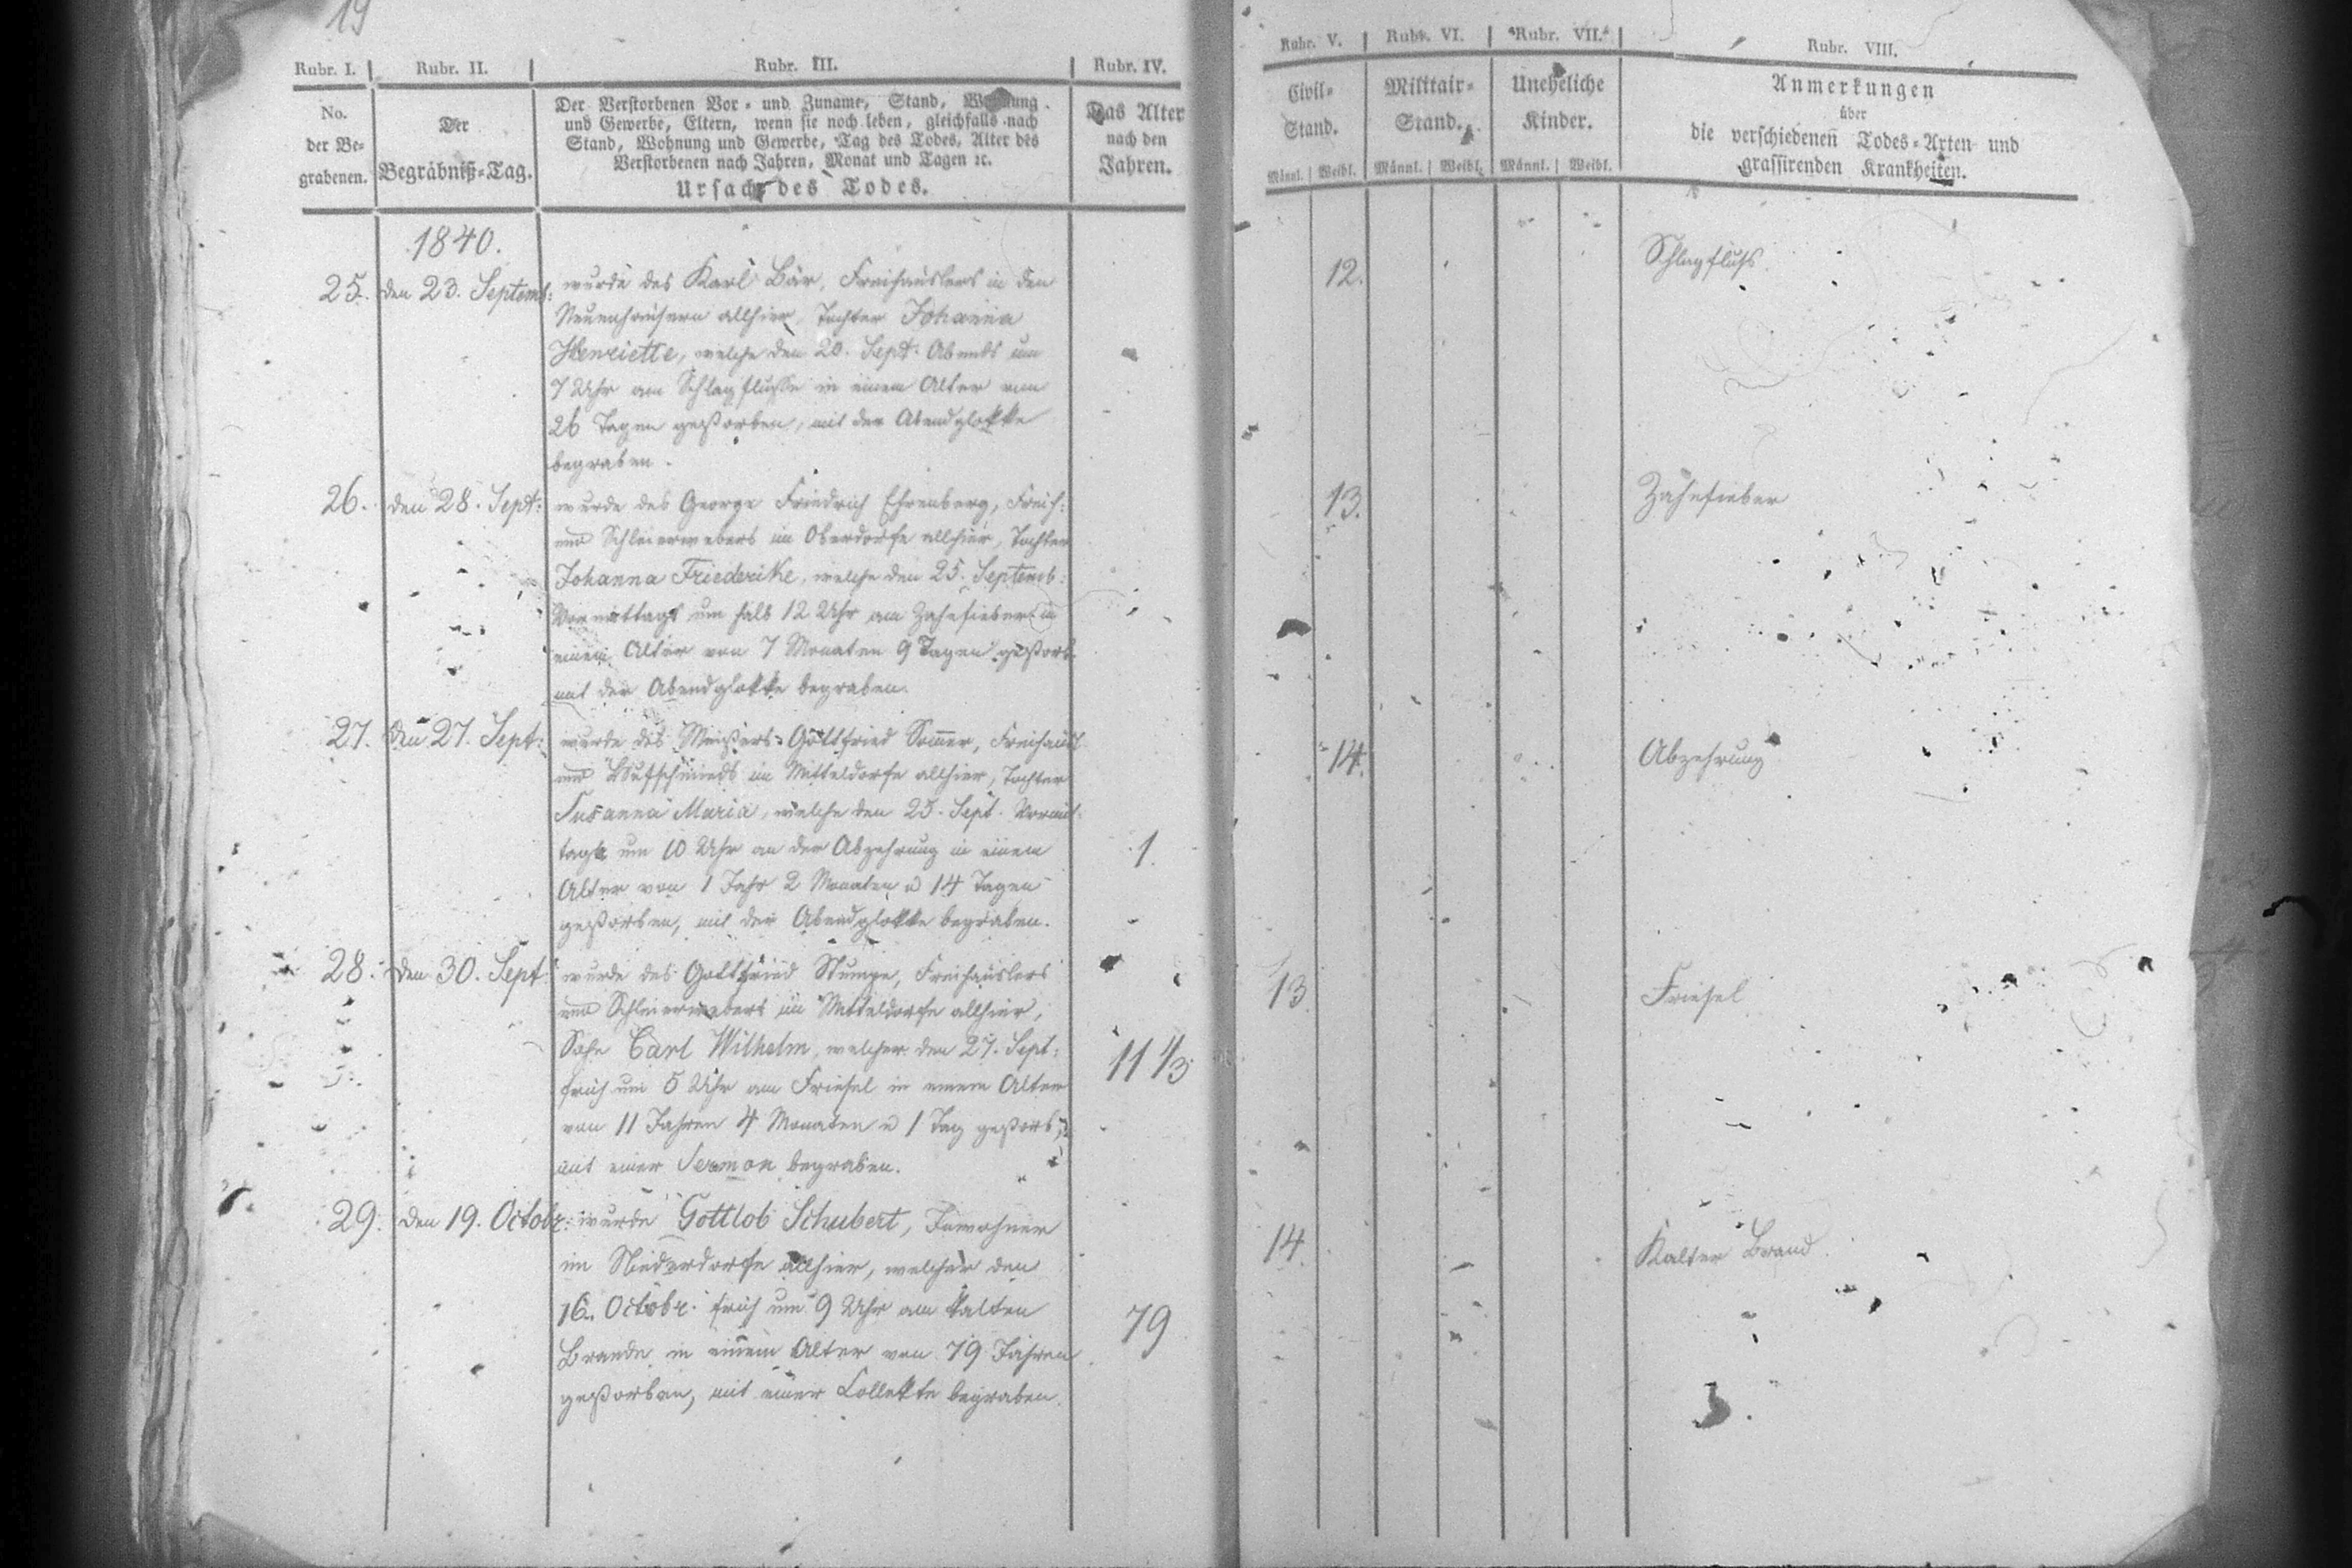 19
Rubr. I. Rubr. II. Rubr. III. Rubr. IV.
No.
der Be-
grabenen.
Der
Begräbniß-Tag.
Der Verstorbenen Vor- und Zuname, Stand, Wohnung
und Gewerbe, Eltern, wenn sie noch leben, gleichfalls nach
Stand, Wohnung und Gewerbe, Tag des Todes, Alter des
Verstorbenen nach Jahren, Monat und Tagen ꝛc.
Ursach des Todes.
Das Alter
nach den
Jahren.
1840.
25. den 23. Septemb: wurde des Karl Bär, Freihäuslers in den
Neuenhäusern allhier, Tochter Johanna
Henriette, welche den 20. Sept: Abends um
7 Uhr am Schlagflusse in einem Alter von
26 Tagen gestorben, mit der Abendglokke
begraben.
26. den 28. Sept: wurde des George Friedrich Ehrenberg, Freih:
und Schleierwebers im Oberdorfe allhier, Tochter
Johanna Friederike, welche den 25. Septemb:
Vormittags um halb 12 Uhr am Zahnfieber in
einem Alter von 7 Monaten 9 Tagen gestorb.
mit der Abendglokke begraben.
27. den 27. Sept: wurde des Meisters Gottfried Som̅er, Freihäusl
und Hufschmieds im Mitteldorfe allhier, Tochter
Susanna Maria, welche den 25. Sept. Vormit-
tags um 10 Uhr an der Abzehrung in einem
Alter von 1 Jahr 2 Monaten u 14 Tagen
gestorben, mit der Abendglokke begraben.
1.
28. den 30. Sept wurde des Gottfried Stumpe, Freihäuslers
und Schleierwebers im Mitteldorfe allhier,
Sohn Carl Wilhelm, welcher den 27. Sept:
früh um 5 Uhr am Friesel in einem Alter
von 11 Jahren 4 Monaten u 1 Tag gestorb:,
mit einer Sermon begraben.
11 1/3
29. den 19. Octobr: wurde Gottlob Schubert, Inwohner
im Niederdorfe allhier, welcher den
16. Octobr. früh um 9 Uhr am kalten
Brande in einem Alter von 79 Jahren
gestorben, mit einer Collekte begraben.
79
Rubr. V. Rubr. VI. Rubr. VII. Rubr. VIII.
Civil-
Stand.
Militair-
Stand.
Uneheliche
Kinder.
Anmerkungen
über
die verschiedenen Todes-Arten und
grassirenden Krankheiten.
Männl. Weibl. Männl. Weibl. Männl. Weibl.
12. Schlagfluss
13. Zahnfieber
14. Abzehrung
13 Friesel
14. Kalter Brand